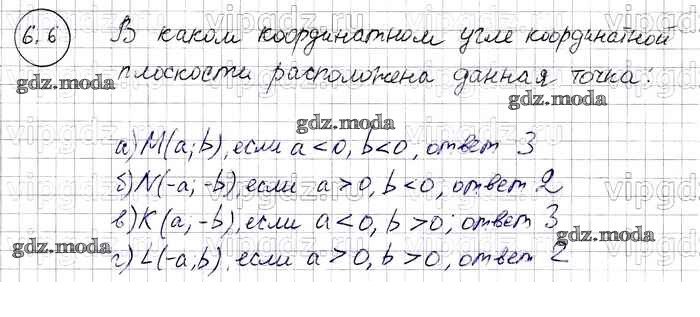 6.6 В каком координатном угле координатной
плоскости расположена данная точка:
а) M(a; b), если a < 0, b < 0, ответ 3
б) N(-a; -b), если a > 0, b < 0, ответ 2
в) K(a; -b), если a < 0, b > 0; ответ 3
г) L(-a; b), если a > 0, b > 0, ответ 2
gdz.moda
gdz.moda
gdz.moda
gdz.moda
gdz.moda